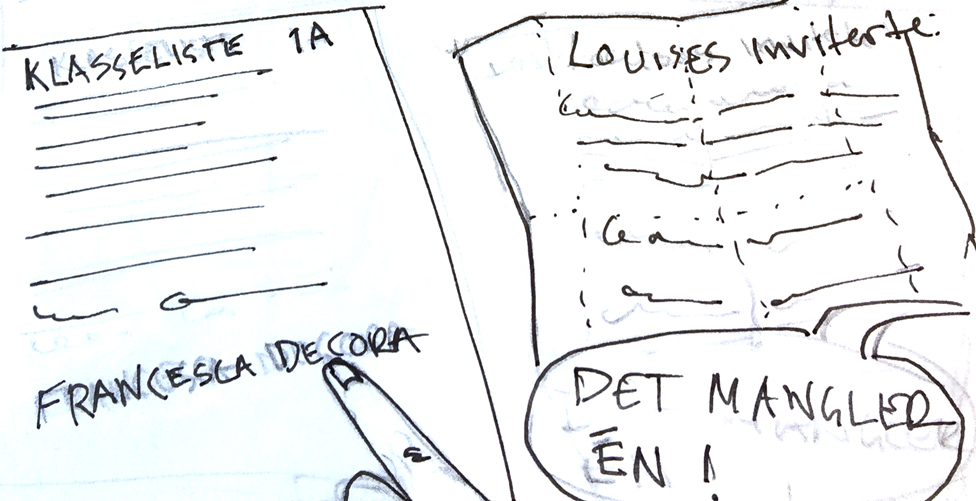 KLASSELISTE 1A
FRANCESCA DECORA
LOUISES inviterte:
DET MANGLER
ÉN!